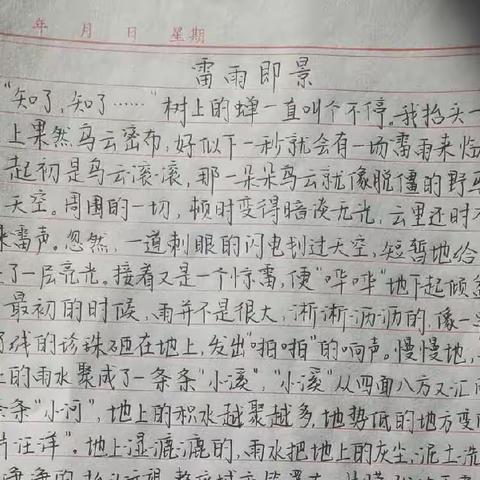 年 月 日 星期
雷雨即景
“知了,知了……”树上的蝉一直叫个不停。我抬头一
上果然乌云密布,好似下一秒就会有一场雷雨来临
起初是乌云滚滚,那一朵朵乌云就像脱僵的野马
天空。周围的一切,顿时变得暗淡无光,云里还时不
来雷声。忽然,一道刺眼的闪电划过天空,短暂地给
了一层亮光。接着又是一个惊雷,便“哗哗”地下起倾盆
最初的时候,雨并不是很大,淅淅沥沥的,像一
了线的珍珠砸在地上,发出“啪啪”的响声。慢慢地,
上的雨水聚成了一条条“小溪”,“小溪”从四面八方又汇
条“小河”,地上的积水越聚越多,地势低的地方变
片汪洋”。地上湿漉漉的,雨水把地上的灰尘,泥土洗